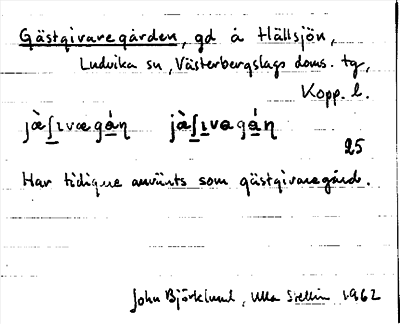 Gästgivaregården, gd å Hällsjön,
Ludvika sn, Västerbergslags doms. tg,
Kopp. l.
jæ̀ʃɩvægáɳ jæ̀ʃɩvagáɳ
25
Har tidigare använts som gästgivaregård.
John Björklund, Ulla Stellin 1962